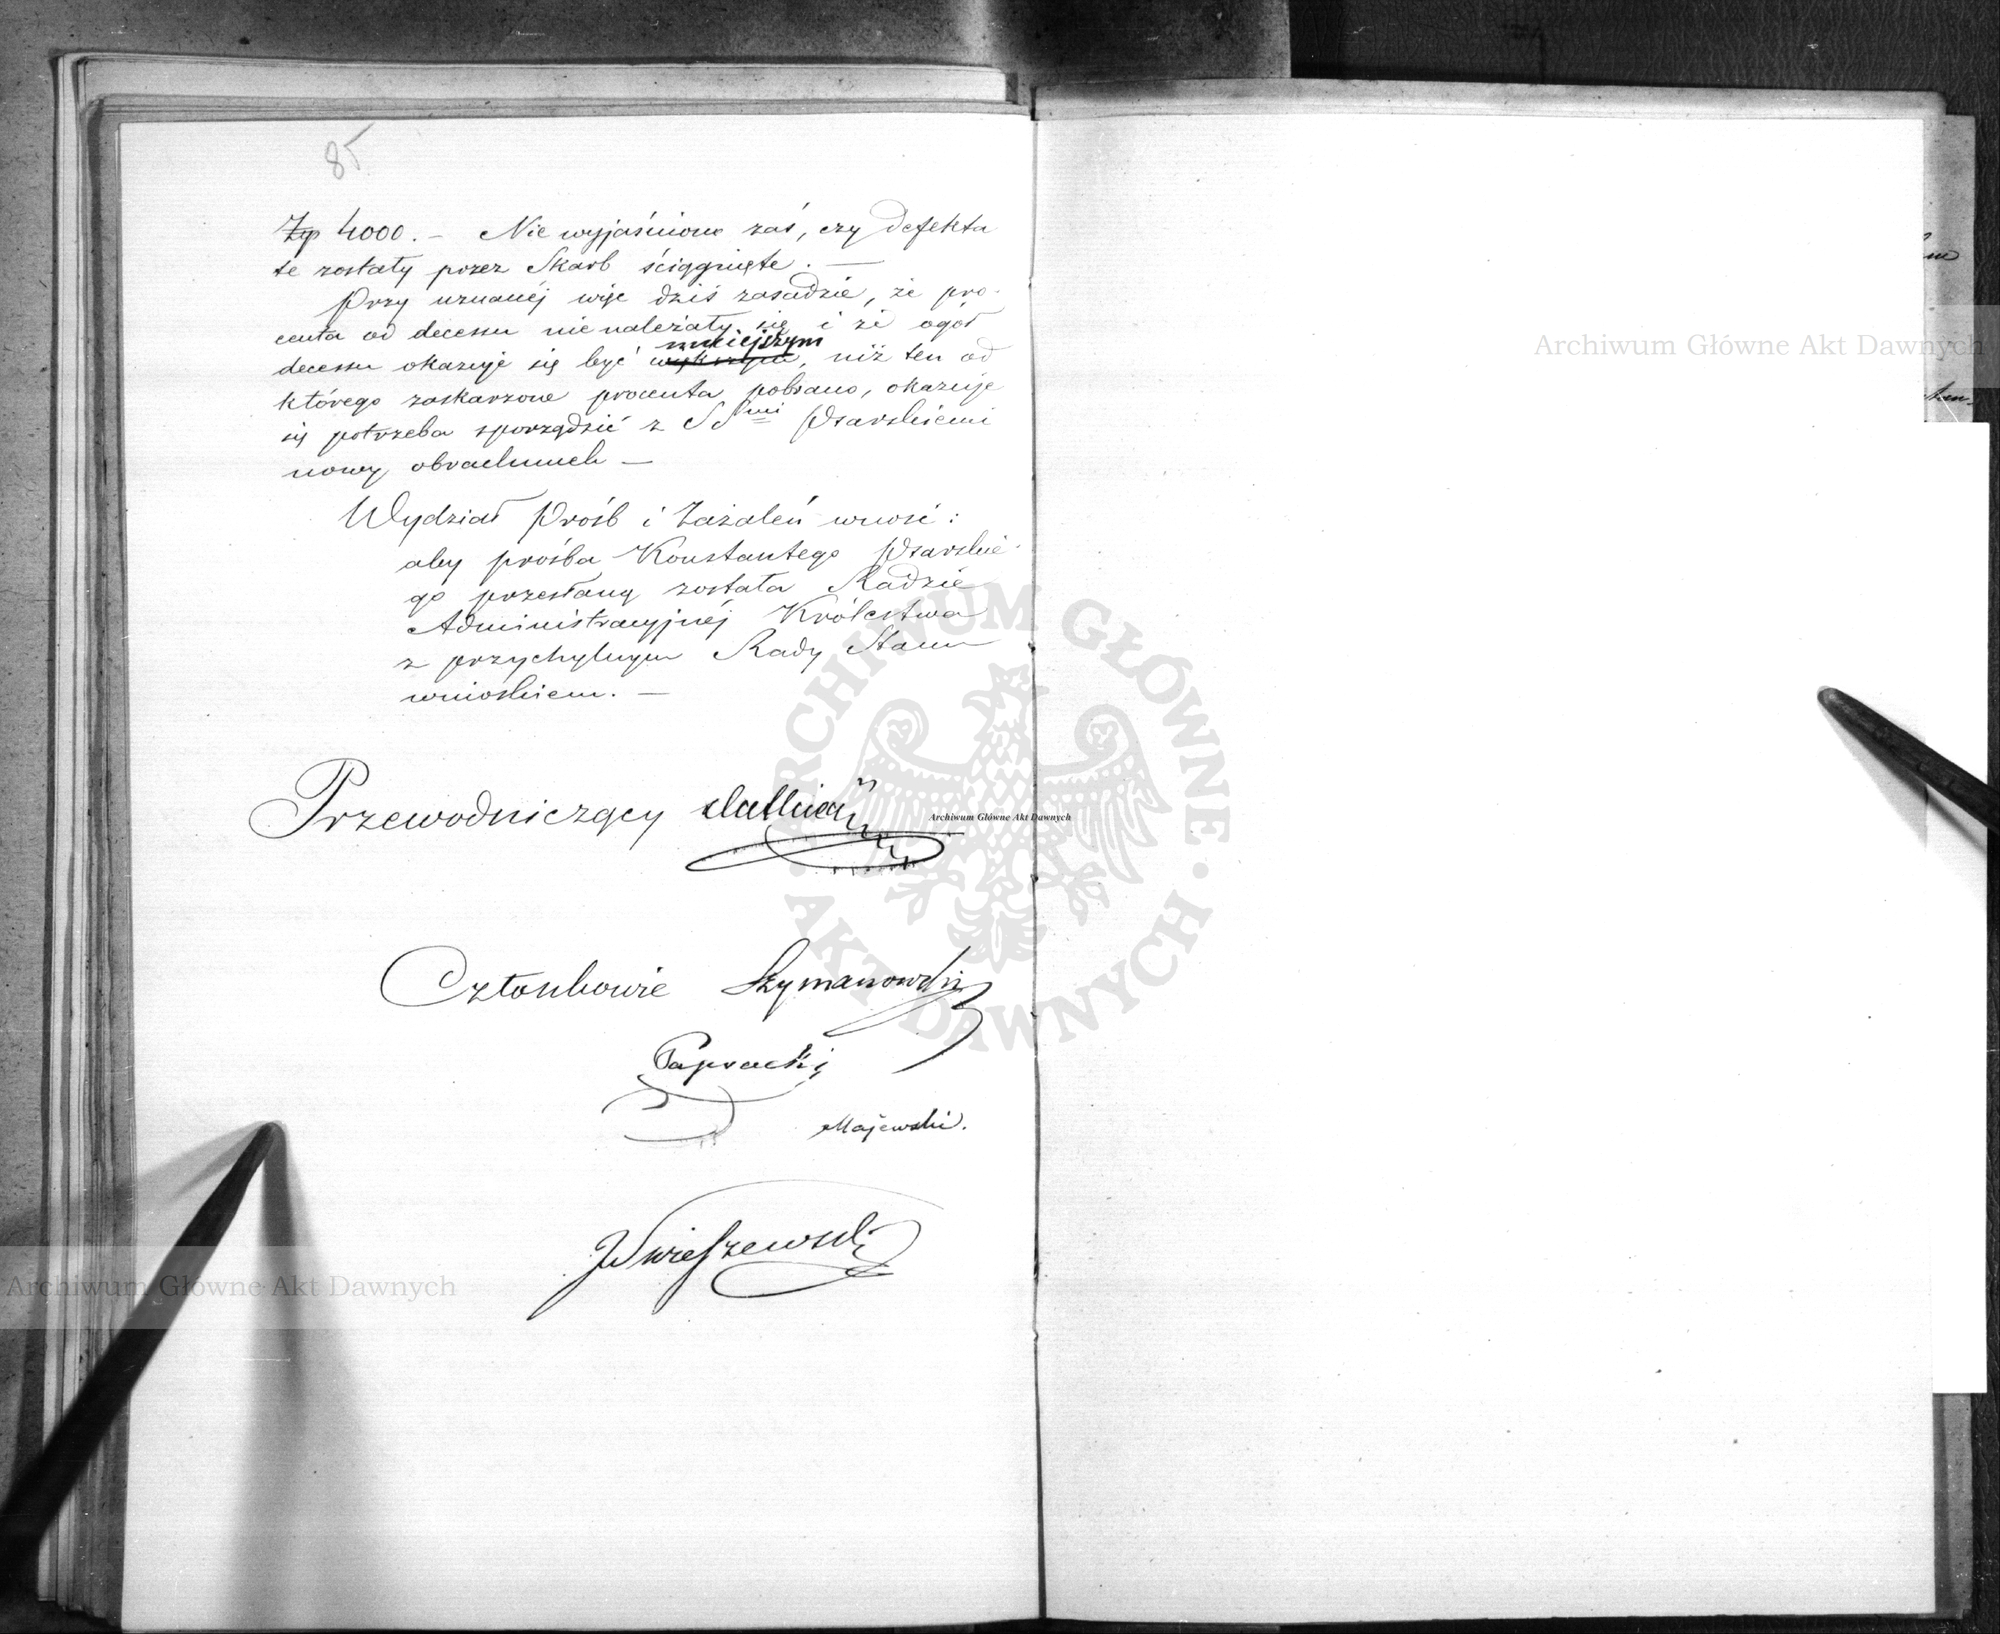 85
Złp 4000. – Nie wyjaśniono zaś, czy defekta
te zostały przez Skarb ściągnięte. —
Przy uznanéj więc dziś zasadzie, że pro-
centa od decessu nie należały się i że ogół
decessu okazuje się być mniejszym, niż ten od
którego zaskarżone procenta pobrano, okazuje
się potrzeba sporządzić z SSmi Psarskiemi
nowy obrachunek —
Wydział Próśb i Zażaleń wnosi:
aby prośba Konstantego Psarskie-
go przesłaną została Radzie
Administracyjnéj Królestwa
z przychylnym Rady Stanu
wnioskiem. —
Przewodniczący
Członkowie Szymanowski
Paprocki
Majewski.
Archiwum Główne Akt Dawnych
Archiwum Główne Akt Dawnych
Archiwum Główne Akt Dawnych
ARCHIWUM GŁÓWNE · AKT DAWNYCH ·